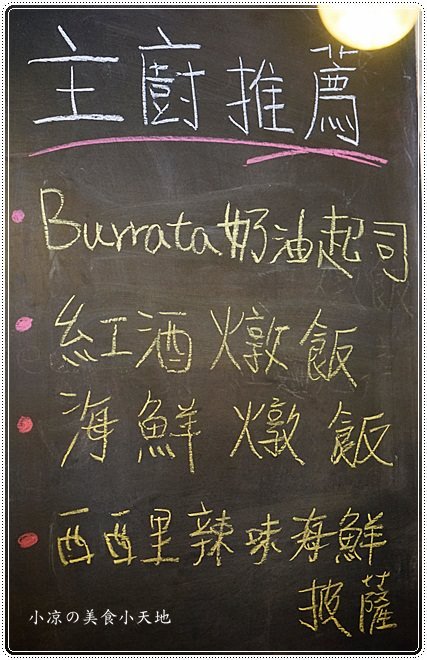 主廚推薦
Burrata奶油起司
紅酒燉飯
海鮮燉飯
西西里辣味海鮮
披薩
小凉の美食小天地